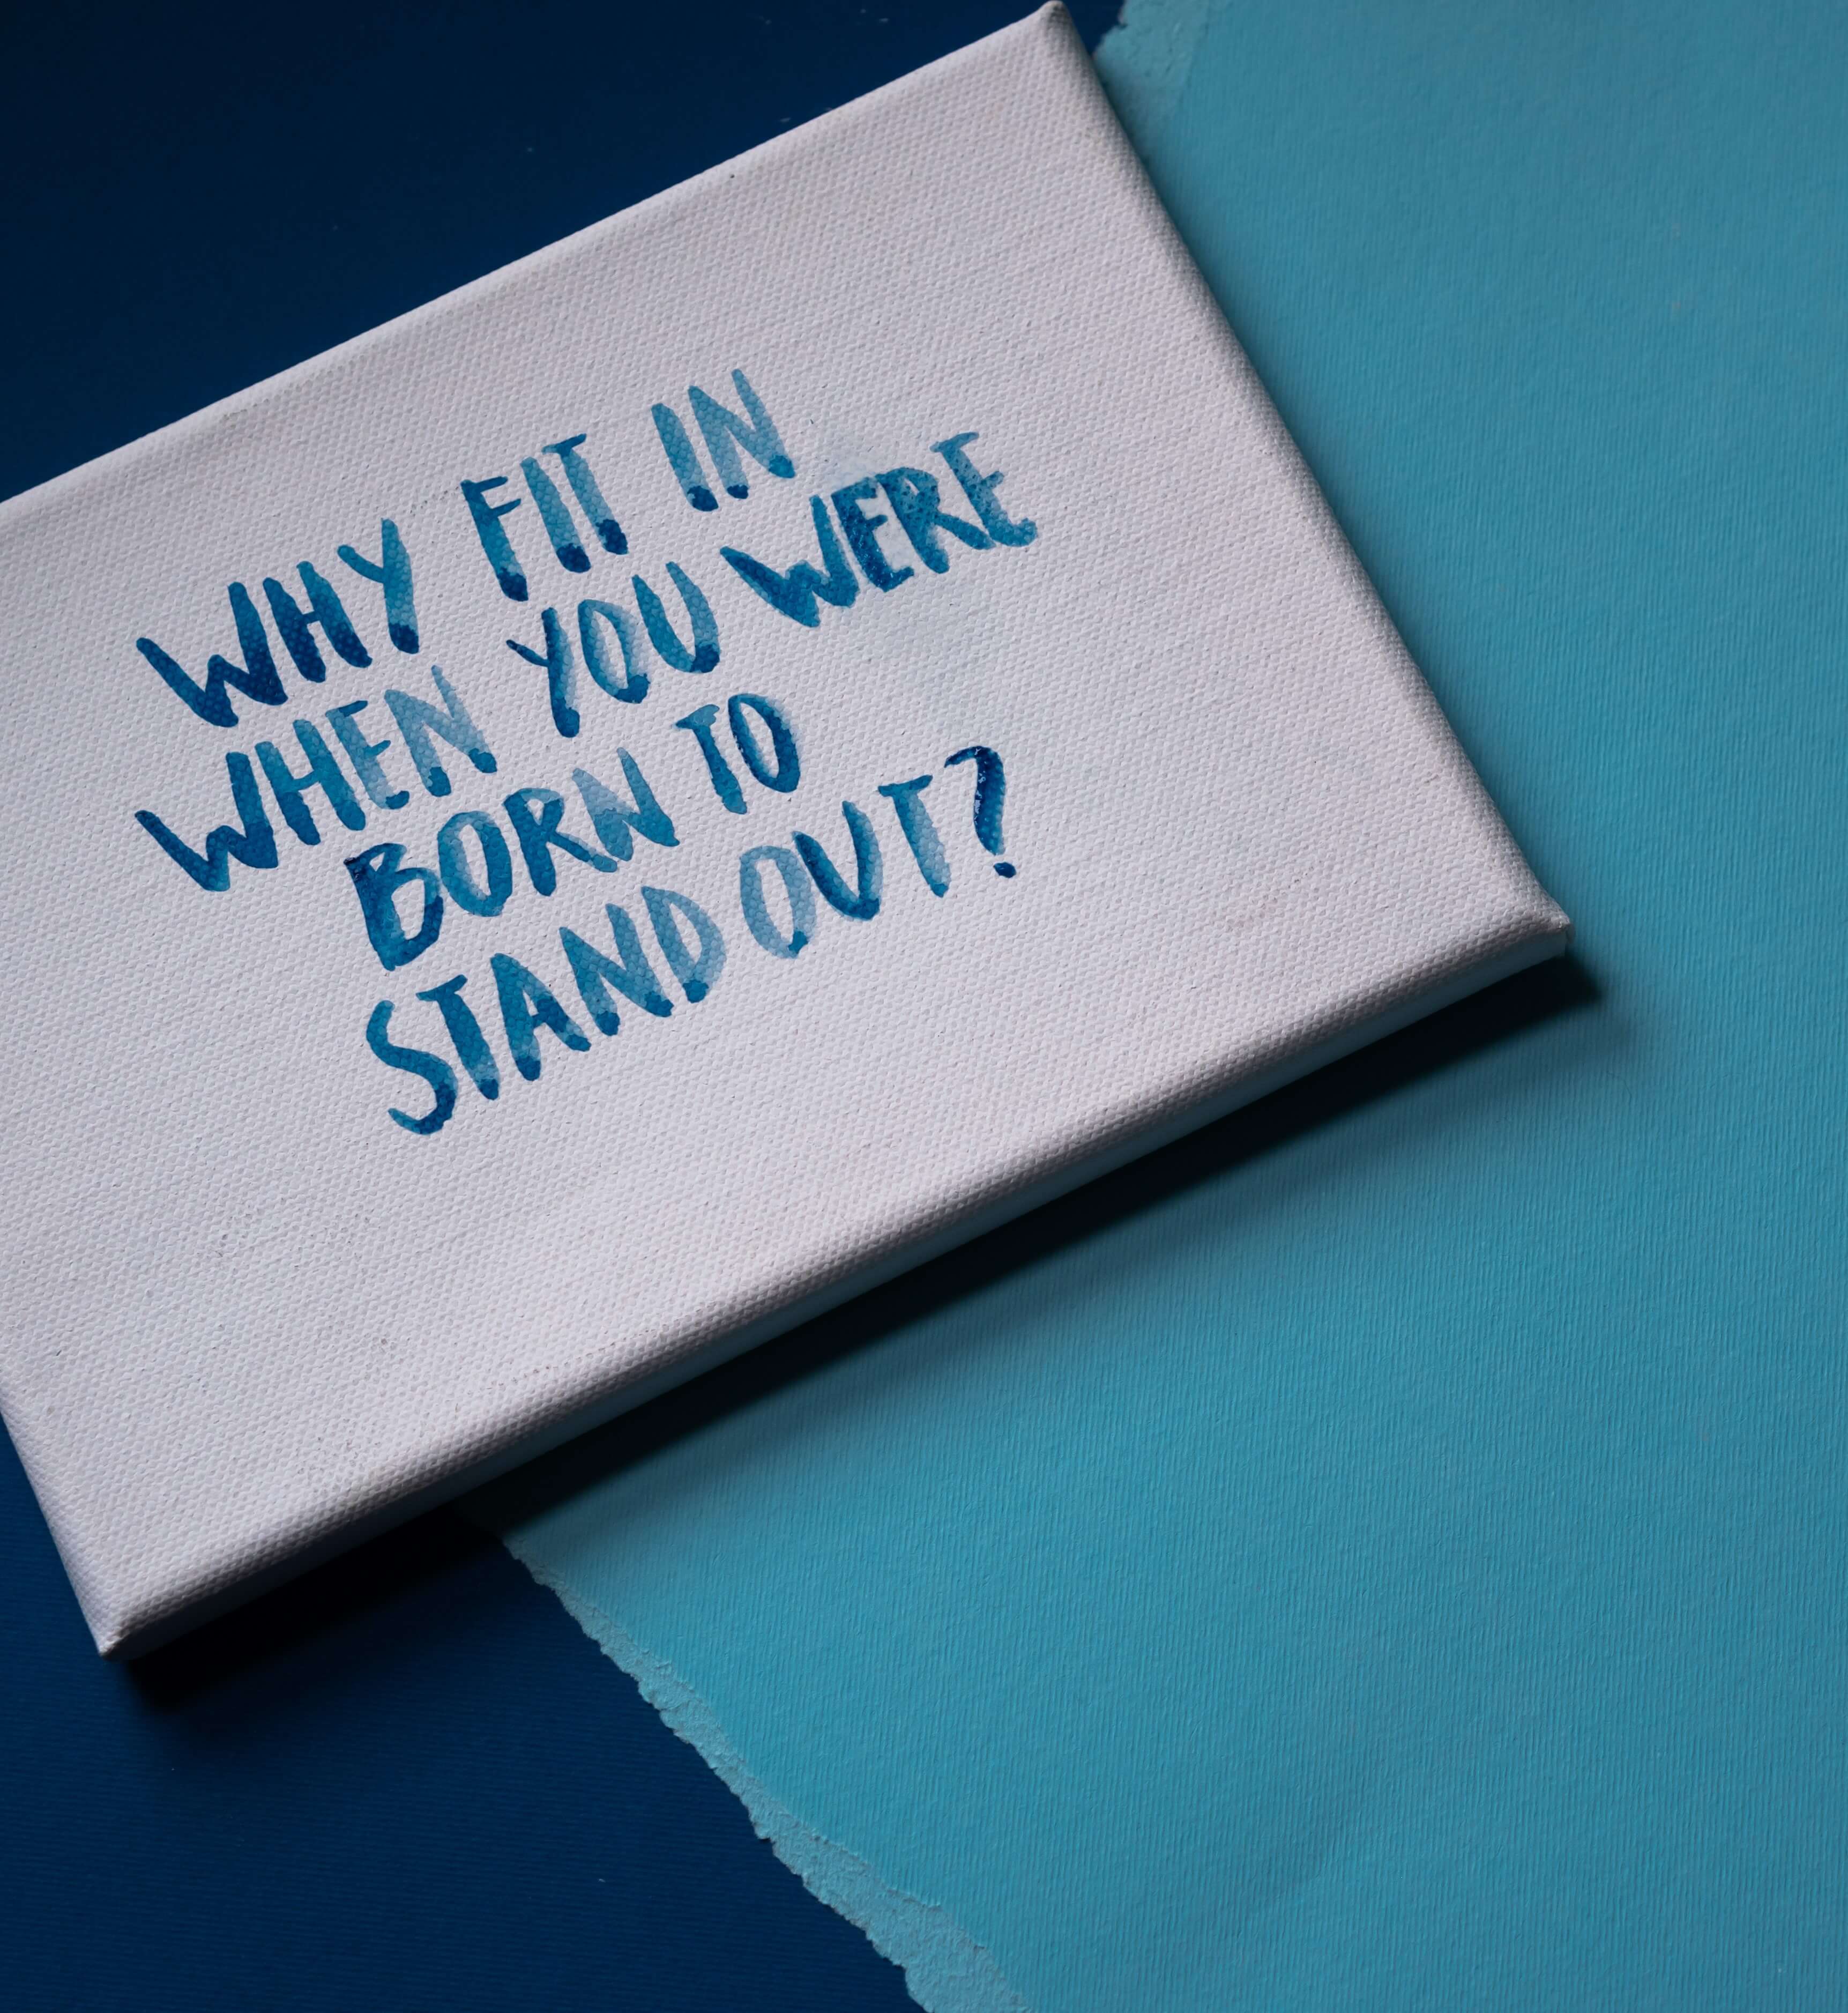 WHY FIT IN
WHEN YOU WERE
BORN TO
STAND OUT?